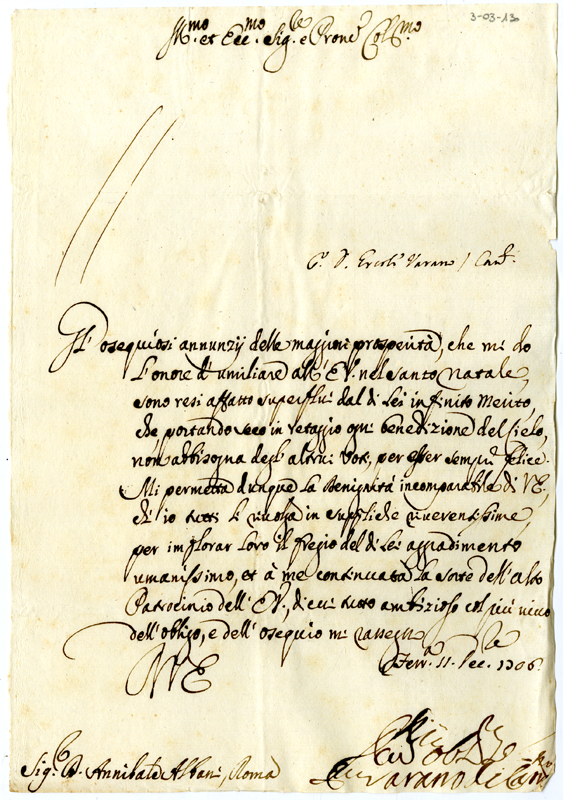 3-03-13
Ill.mo et Ecc.mo Sig.re e Prone Col.mo
S. Ercole Varano / Cam.
Gl'osequiosi annunzij delle maggiori prosperità, che mi do
l'onore d'umiliare all'EV. nel santo natale,
sono resi affatto superflui dal di Lei infinito Merito,
che portando seco in retaggio ogni benedizione del Cielo,
non abbisogna degl'altrui Voti, per esser sempre felice.
Mi permetta dunque la Benignità incomparabile di VE,
ch'io tutti li rivolga in suppliche riverentissime,
per implorar loro il fregio del di Lei aggradimento
umanissimo, et à me continuata la sorte dell'alto
Patrocinio dell'EV., di cui tutto ambizioso col più vivo
dell'obligo, e dell'osequio mi rassegno
Di VE
Ferr.a 11. Dec. 1706.
Sig.r D. Annibale Albani, Roma
Varano di Cam.no